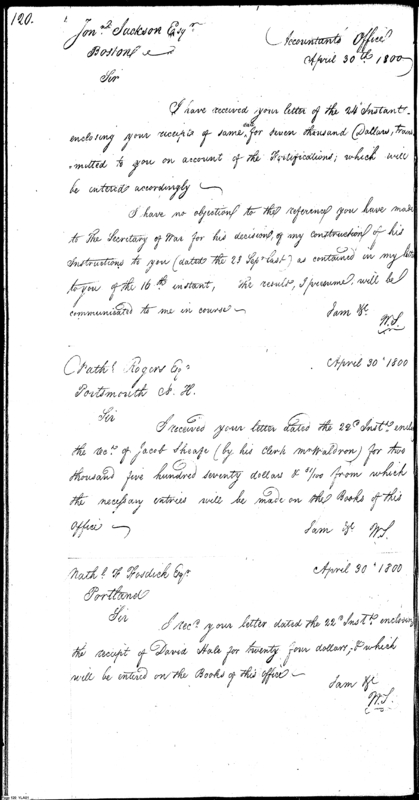 120.
Jonᵃ. Jackson Esqʳ.
Boston
Accountants Office
April 30th 1800
Sir
I have received your letter of the 24 Instant
enclosing your receipt of same date for seven thousand Dollars, trans
mitted to you on account of the Fortifications; which will
be entered accordingly
I have no objection to the reference you have made
to the Secretary of War for his decision, of my construction of his
Instructions to you (dated the 23 Sepʳ last) as contained in my letter
to you of the 16th instant, The result, I presume, will be
communicated to me in course
I am &c
W.S.
April 30th 1800
Nathˡ Rogers Eqʳ
Portsmouth N. H.
Sir
I received your letter dated the 22d Instt. enclog
the rect. of Jacob Sheafe (by his Clerk Mr Waldron) for two
thousand five hundred seventy dollars & /100 from which
the necessary entries will be made on the Books of this
Office
I am &c W.S.
April 30th 1800
Nathˡ F Fosdick Eqʳ
Portland
Sir
I recd. your letter dated the 22d Instt. enclosing
the receipt of David Hale for twenty four dollars, & which
will be entered on the Books of this office
I am &c
W.S.